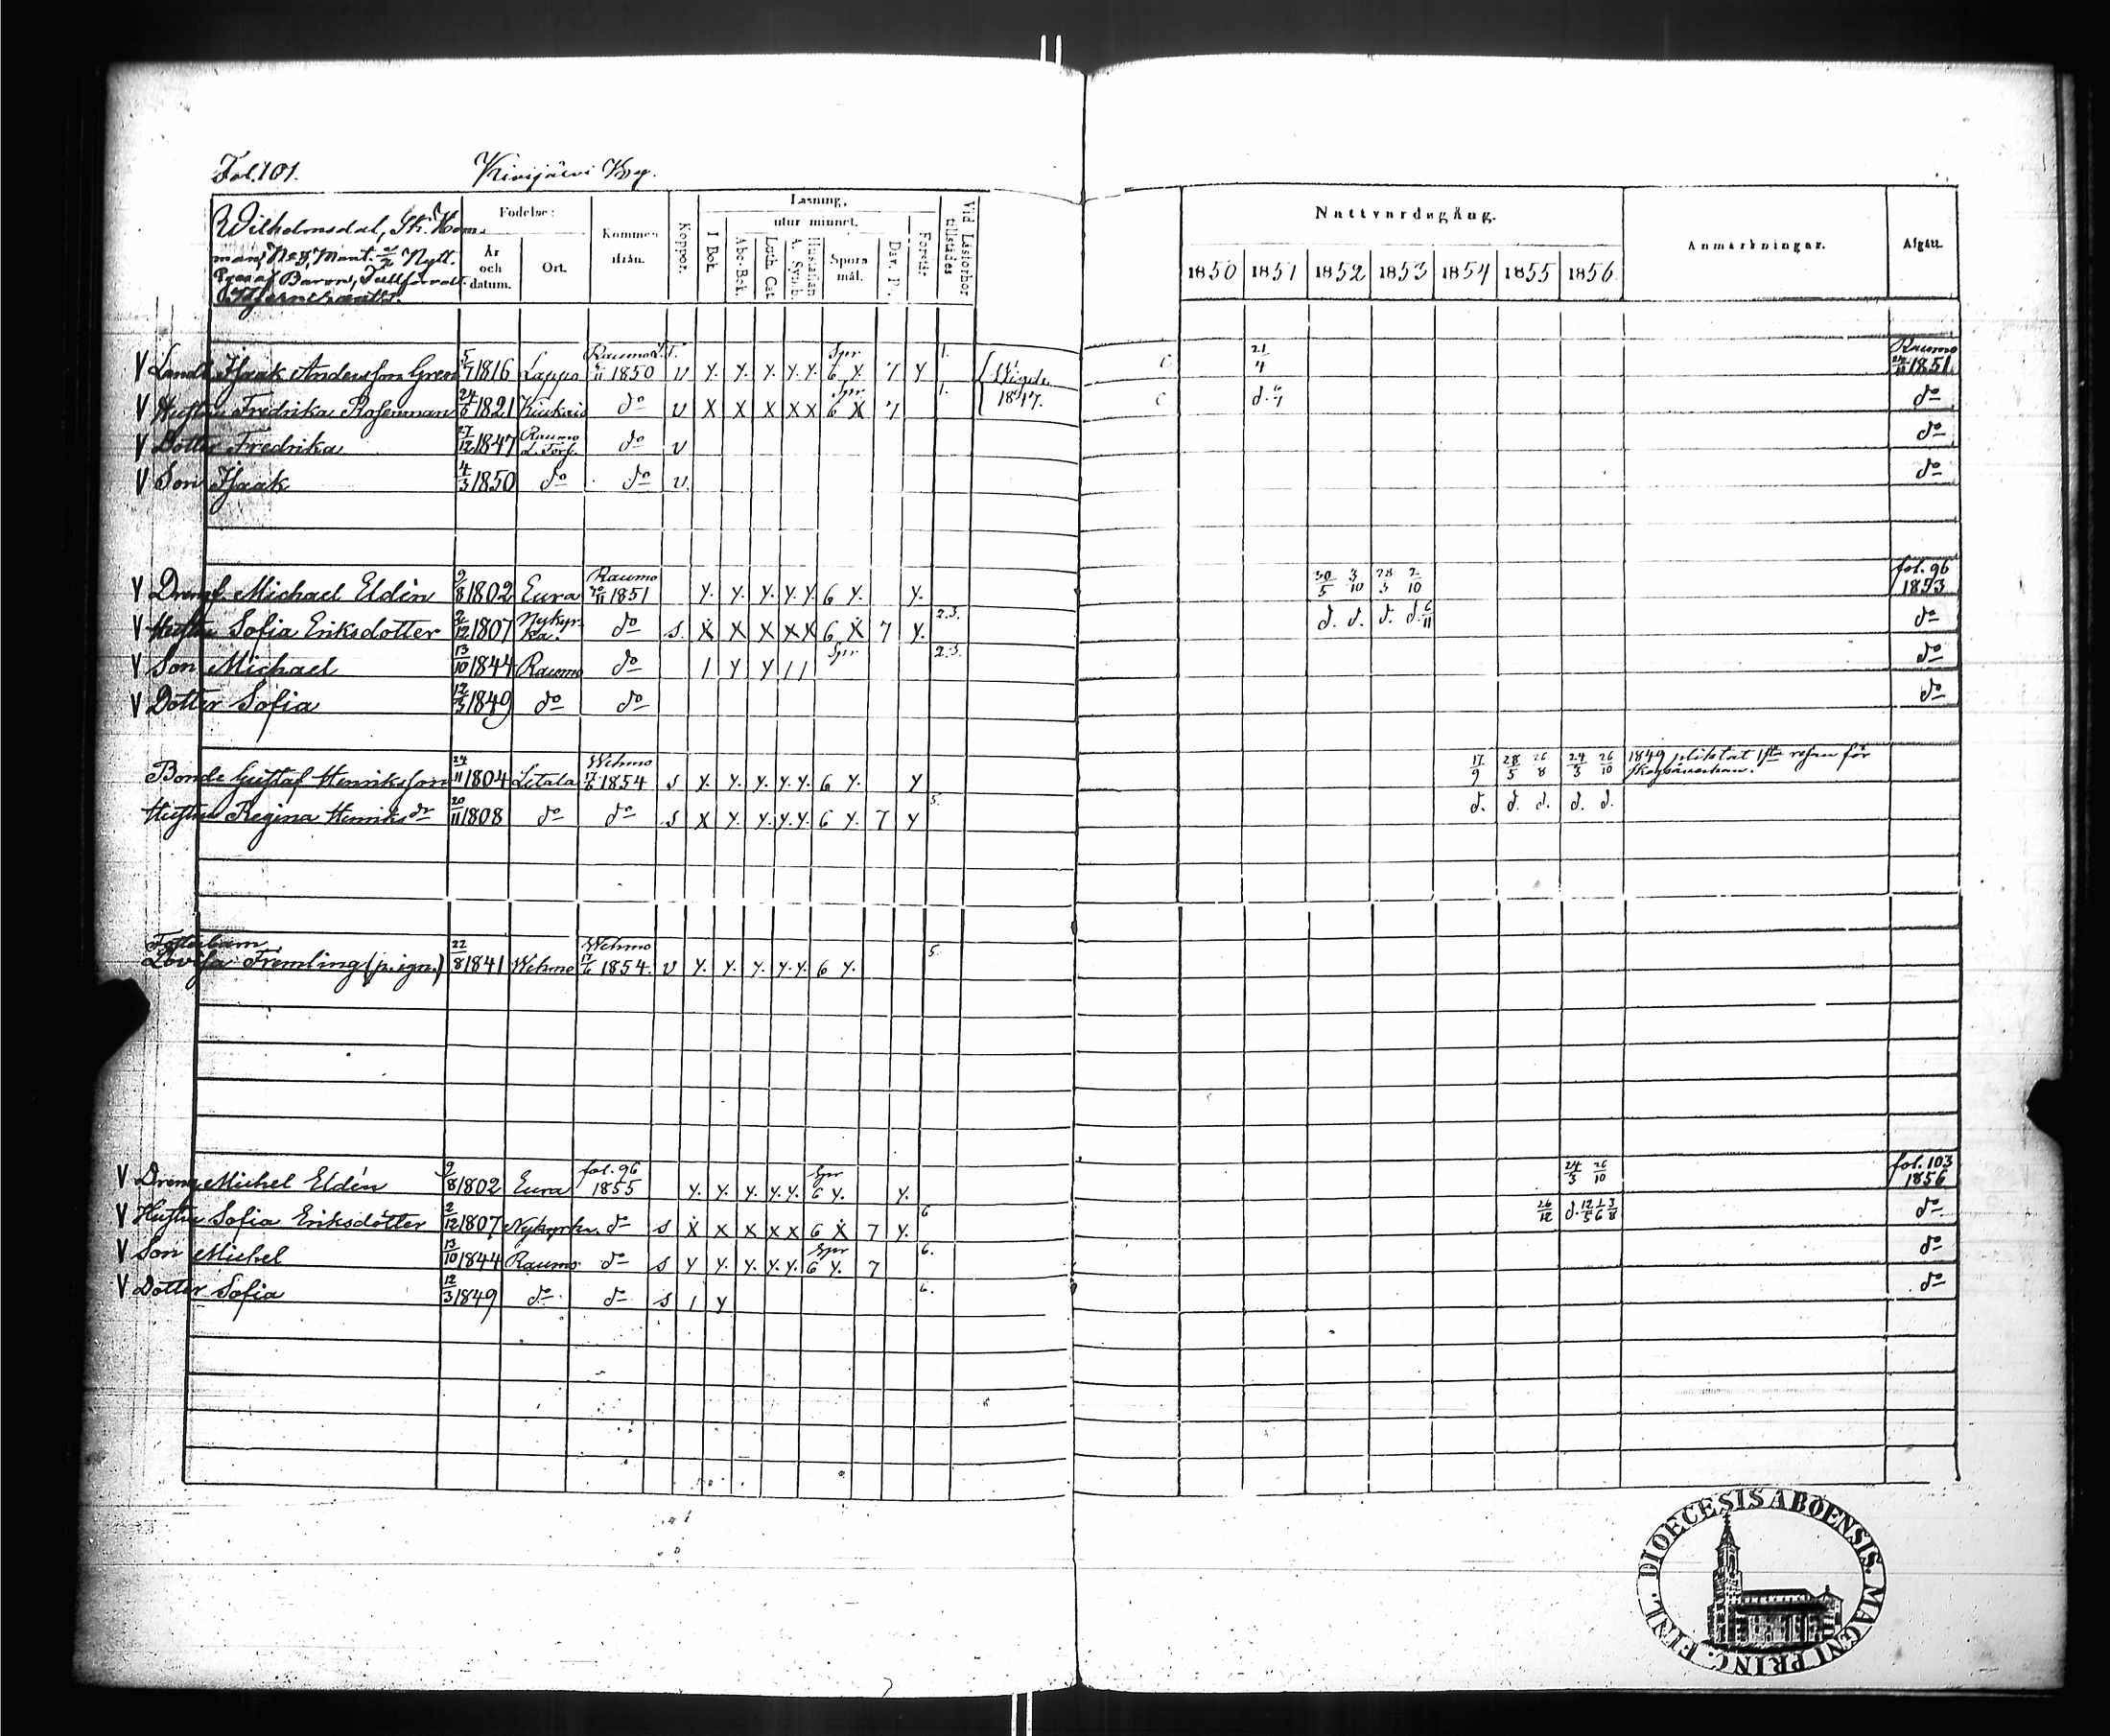 Fol. 101. Kivijärvi By.
Wilhelmsdal,
Mant. Nytt.
Födelse: Kommen ifrån. Koppor. Läsning, Vid Läsförhör tillstädes
År och datum. Ort. I Bok. utur minnet. Förstår
Abc-Bok. Luth. Cat. A. Symb. Hustaflan Spörs mål. Dav. P.
Nattvardsgång. Anmärkningar. Afgått.
1850 1851 1852 1853 1854 1855 1856
V Isaak Andersson Gren 5/7 1816 Lappo 1850 v y. y. y. y. y. Spr 6 y. 7 y 1. Wigde 1847. 21/4 Raumo 1851.
V Hustru Fredrika Rosenman 1821 do v x x x x x Spr 6 x 7 1. d. do
V Dotter Fredrika 27/12 1847 Raumo do v do
V Son Isaak 4/3 1850 do do v. do
V Dreng Michael Eldén 9/8 1802 Eura Raumo 1851 y. y. y. y. y. 6 y. y. 30/5 3/10 28/3 2/10 fol. 96 1853
V Hustru Sofia Eriksdotter 2/12 1807 Nykyrka. do s. x x x x x 6 x 7 y. 2.3. d. d. d. d. 6/11 do
V Son Michael 13/10 1844 Raumo do 1 y y 1 1 Spr 2.3. do
V Dotter Sofia 12/3 1849 do do do
Bonde Gustaf Henriksson 24/11 1804 Letala Wehmo 17/6 1854 s y. y. y. y. y. 6 y. y 17/9 28/5 26/8 24/3 26/10 1849 pliktat 1sta resan för
skogsåverkan.
Hustru Regina Henriksdr 20/11 1808 do do s x y. y. y. y. 6 y. 7 y 5. d. d. d. d. d.
Fosterbarn
Lovisa Fremling (p. ign.) 22/8 1841 Wehmo Wehmo 17/6 1854. v y. y. y. y. y. 6 y. 5.
V Dreng Michel Eldén 9/8 1802 Eura fol. 96 1855 y. y. y. y. y. Spr 6 y. y. 24/3 26/10 fol. 103 1856
V Hustru Sofia Eriksdotter 2/12 1807 Nykyrka. do s x x x x x 6 x 7 y. 6 26/12 d. 12/5 1/6 3/8 do
V Son Michel 13/10 1844 Raumo do s y y. y. y. y. Spr 6 y. 7 6. do
V Dotter Sofia 12/3 1849 do do s 1 y 6. do
DIOECESIS ABOENSIS. MAGNI PRINC. FINL.